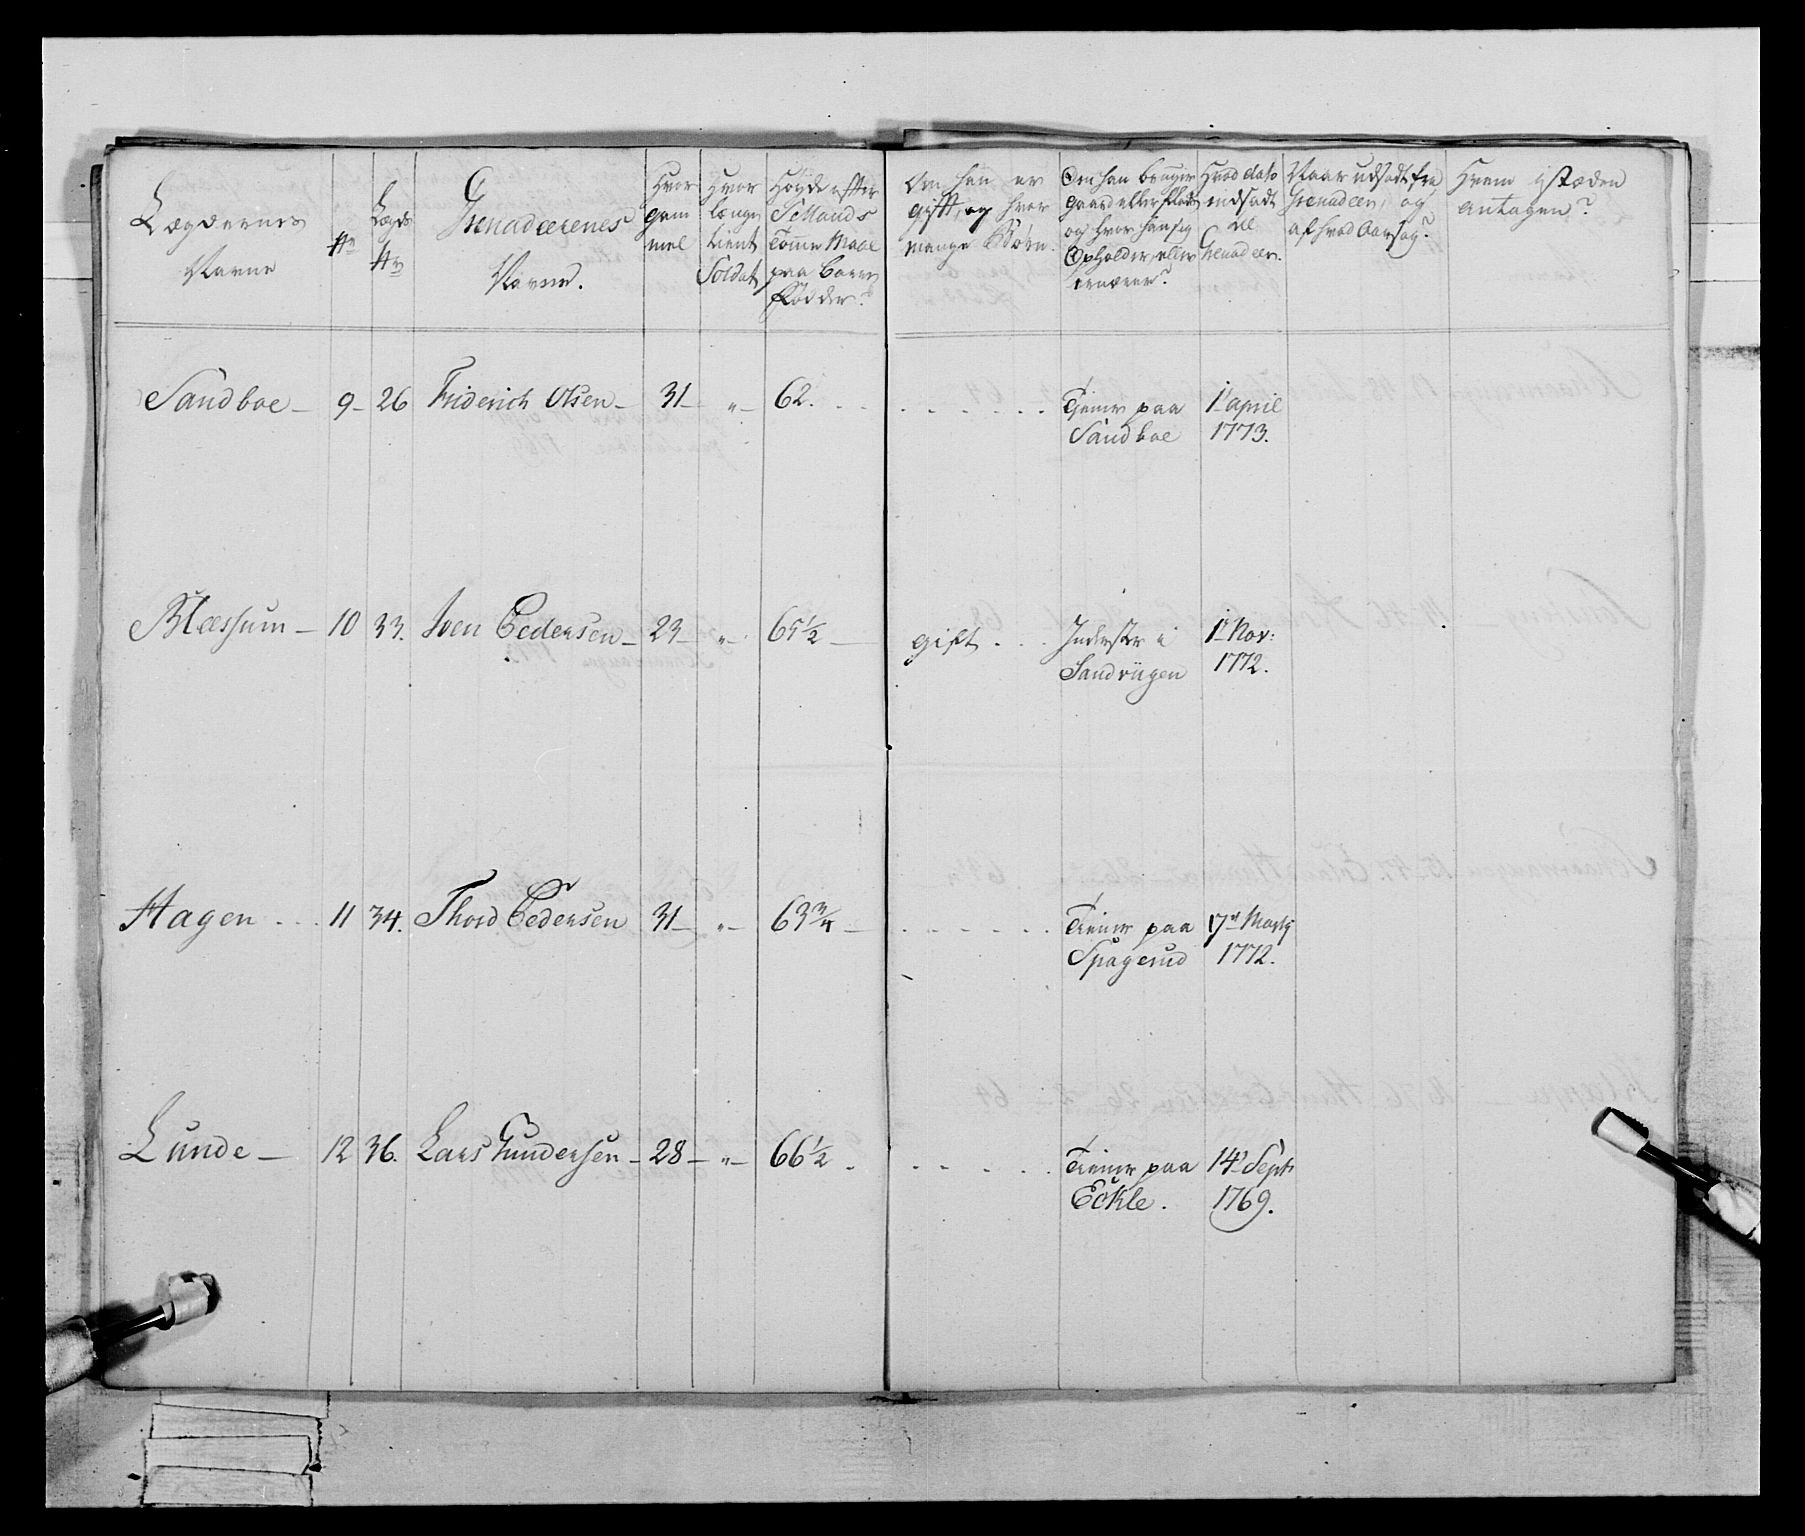 Lægdernes Navne
No
Lægds No
Grenadeerenes Navne.
Hvor gammel
Hvor længe tient Soldat
Høyde efter Sellands Tomme Maal paa bare Fødder?
Om han er gift, og hvor mange Børn.
Om han bruger gaard eller Plads og hvor han sig Opholder, eller tienner?
Hvad dato indsadt til Grenadeer.
Naar udsadt fra Grenadeer, og af hvad Aarsag?
Hvem istæden antagen?
Sandboe — 9 — 26 Friderich Olsen — 31 — „ — 62. . . . . . . . . Tiener paa 1t april
Sandboe 1773.
Blæssum — 10 33. Iven Pedersen — 23 — „ — 65 1/2 — gift . . . Inderster i 1t Nov:
Sandviigen 1772.
Hagen . . . 11 34. Thord Pedersen 31 — „ — 63 3/4 — . . . . . . Tiener paa 17de Martij
Spagerud 1772.
Lunde — 12 36. Lars Gundersen — 28 — „ — 66 1/2 . . . . . . Tiener paa 14de Sept:
Eckle. 1769.